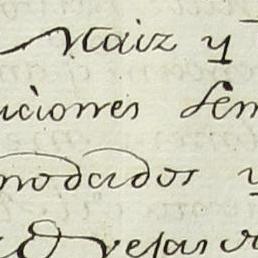 Maiz y
uciones sem
modados y
Ovejas